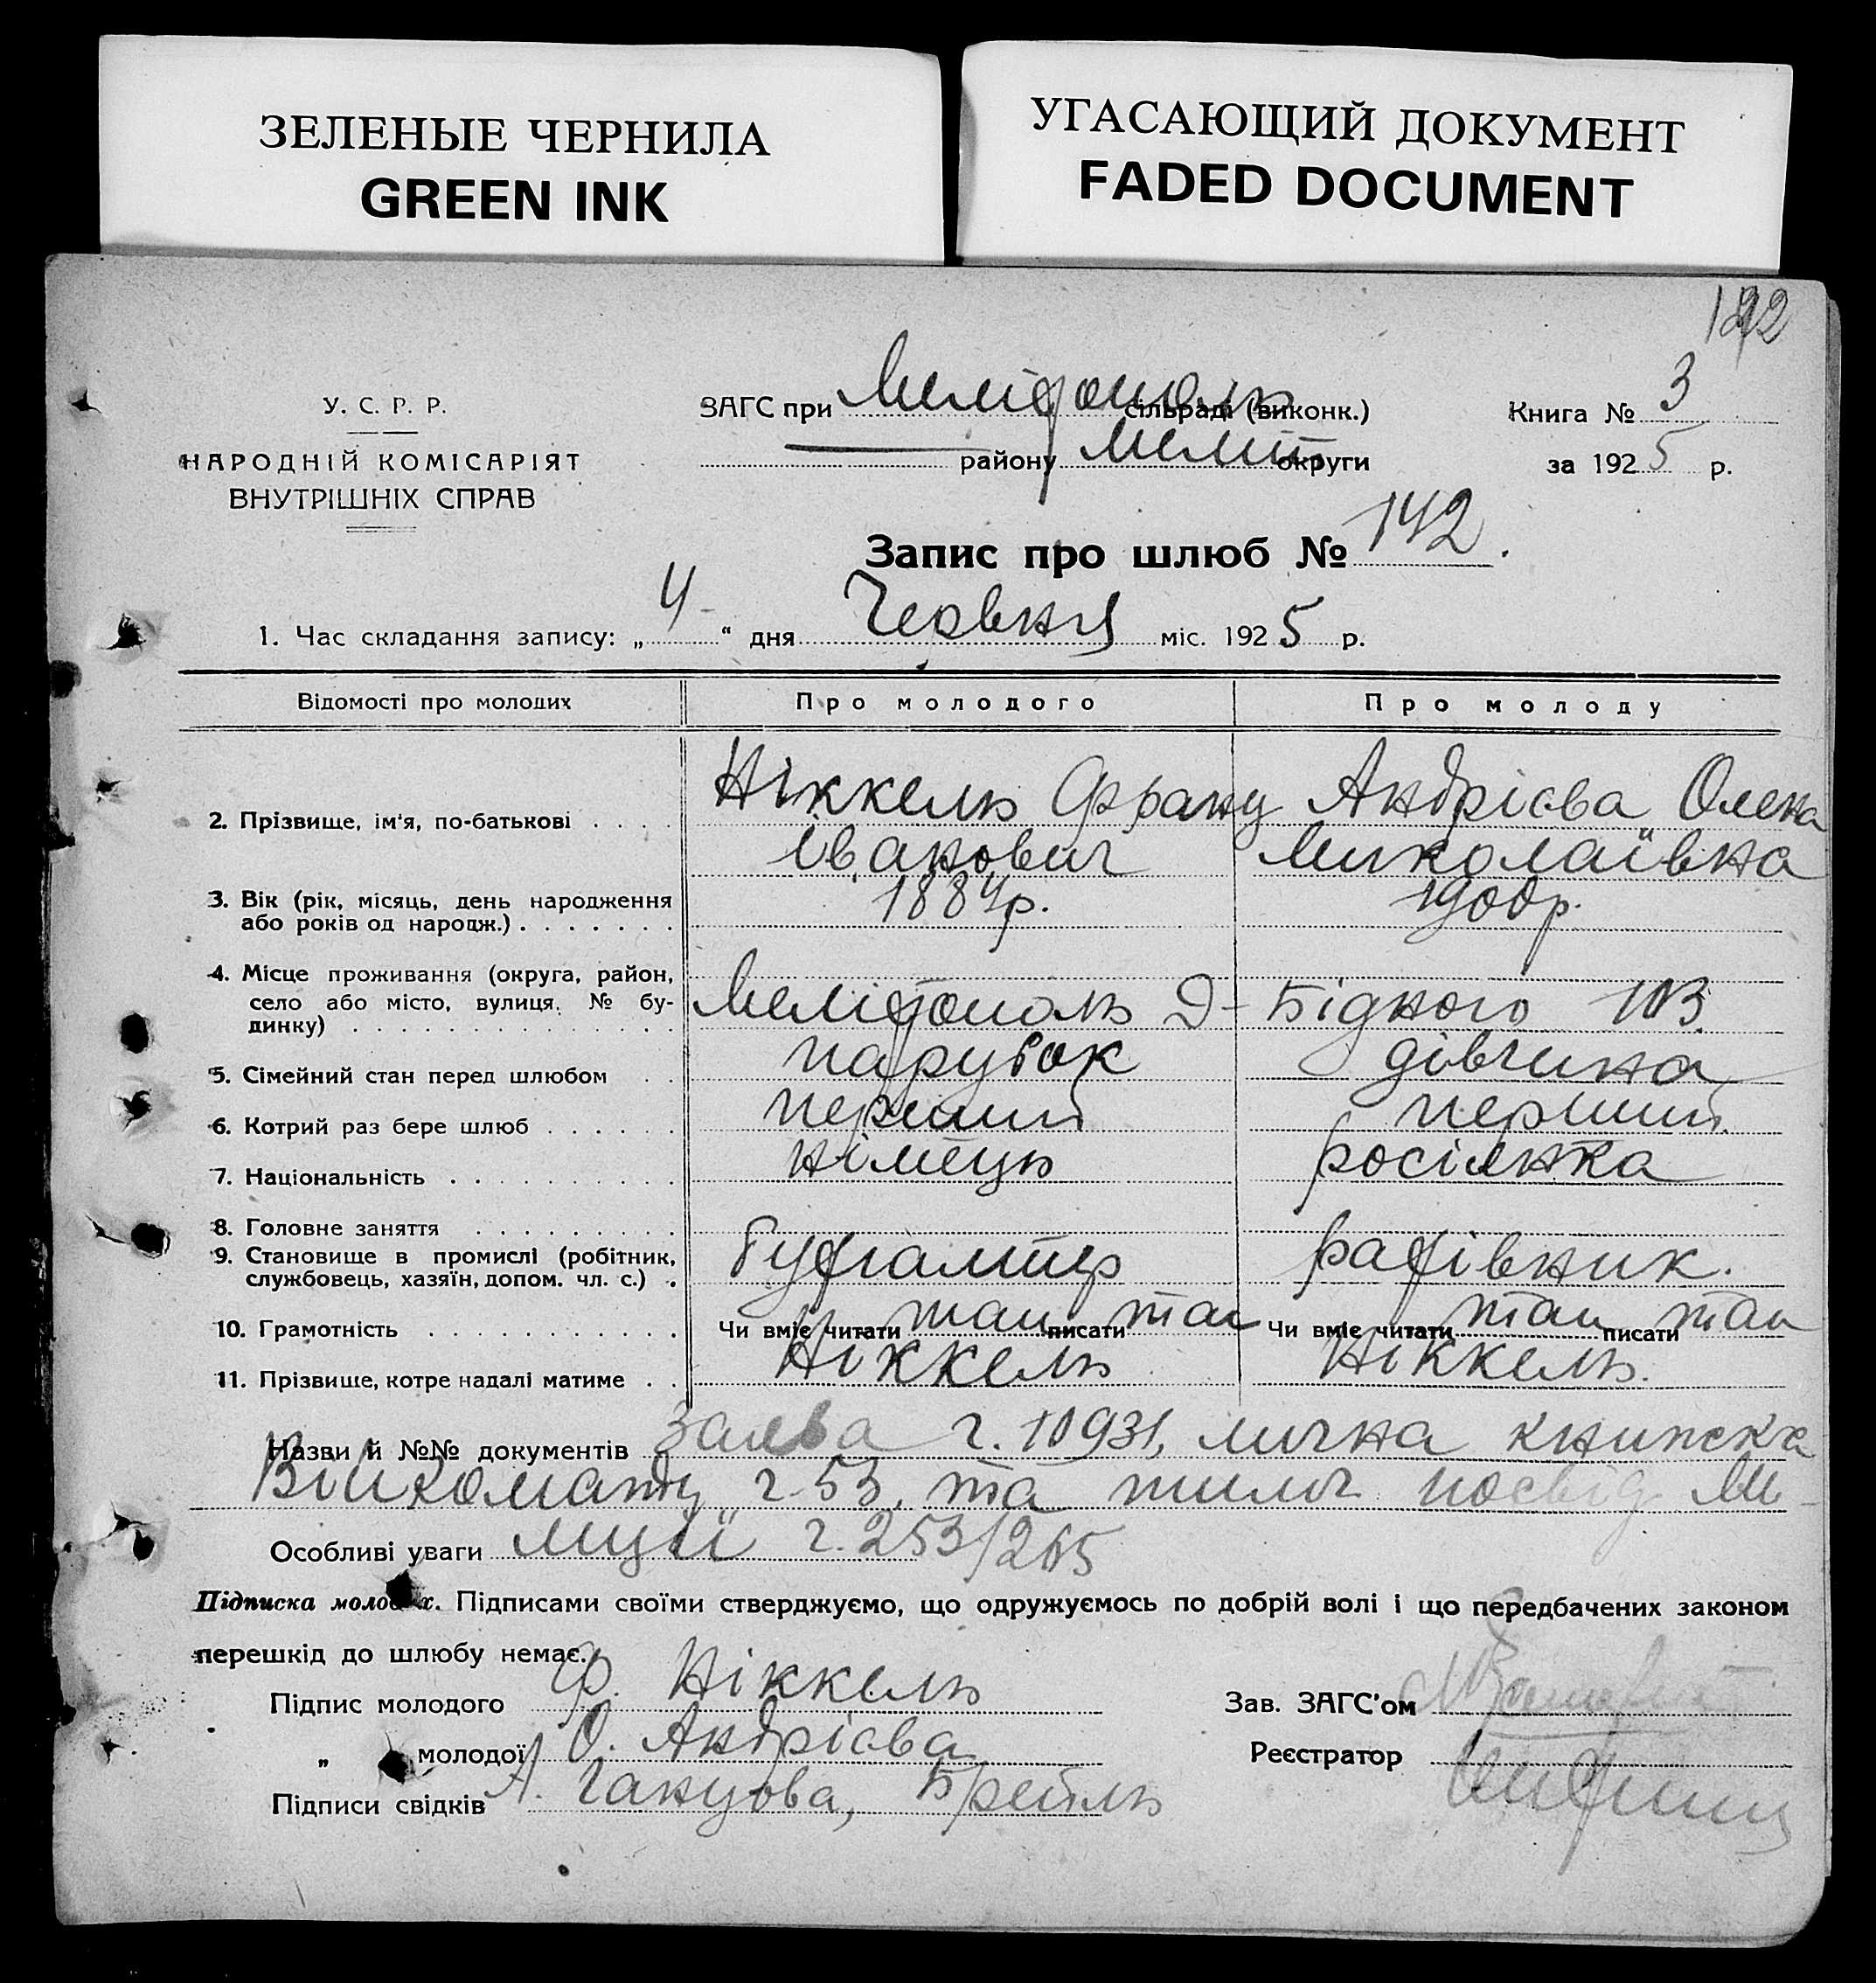 ЗЕЛЕНЫЕ ЧЕРНИЛА
GREEN INK
УГАСАЮЩИЙ ДОКУМЕНТ
FADED DOCUMENT
У. С. Р. Р.
НАРОДНІЙ КОМІСАРІЯТ
ВНУТРІШНІХ СПРАВ
ЗАГС при Мелітополь сільраді (виконк.)
району Меліт округи
Книга № 3
за 1925 р.
Запис про шлюб № 142.
1. Час складання запису: „ 4 “ дня Червня міс. 1925 р.
Відомості про молодих Про молодого Про молоду
2. Прізвище, ім'я, по-батькові Ніккель Франц Іванович Андрієва Олена Миколаївна
3. Вік (рік, місяць, день народження або років од народж.) 1884р. 1900р.
4. Місце проживання (округа, район, село або місто, вулиця, № будинку) Мелітополь Д-Бідного 103.
5. Сімейний стан перед шлюбом парубок дівчина
6. Котрий раз бере шлюб перший перший
7. Національність німець росіянка
8. Головне заняття
9. Становище в промислі (робітник, службовець, хазяїн, допом. чл. с.) бухгалтер
10. Грамотність Чи вміє читати так писати так Чи вміє читати так писати так
11. Прізвище, котре надалі матиме Ніккель Ніккель.
Назви й №№ документів Заява ч. 10931, лична книжка
ч. 53, та посвід Мі-
ліції ч. 253/265
Особливі уваги
Підписка молодих. Підписами своїми стверджуємо, що одружуємось по добрій волі і що передбачених законом
перешкід до шлюбу немає.
Підпис молодого Ф. Ніккель
„ молодої О. Андрієва
Підписи свідків А. Ганцова,
Зав. ЗАГС'ом
Реєстратор